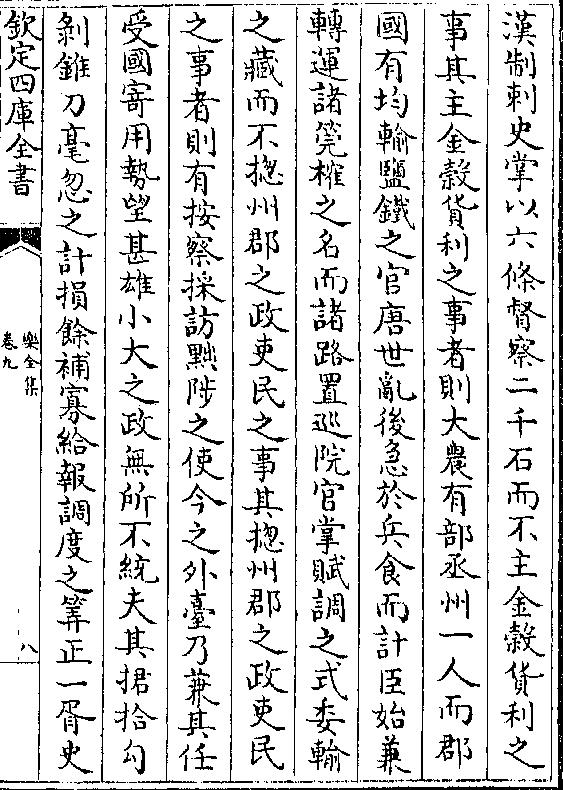 漢制刺史掌以六條督察二千石而不主金穀貨利之
事其主金穀貨利之事者則大農有部丞州一人而郡
國有均輸鹽鐵之官唐世亂後急於兵食而計臣始兼
轉運諸筦榷之名而諸路置巡院官掌賦調之式委輸
之藏而不揔州郡之政吏民之事其揔州郡之政吏民
之事者則有按察採訪黜陟之使今之外臺乃兼其任
受國寄用勢望甚雄小大之政無所不統夫其捃拾勾
剝錐刀毫忽之計損餘補寡給報調度之筭正一胥史
欽定四庫全書
樂全集
卷九
八